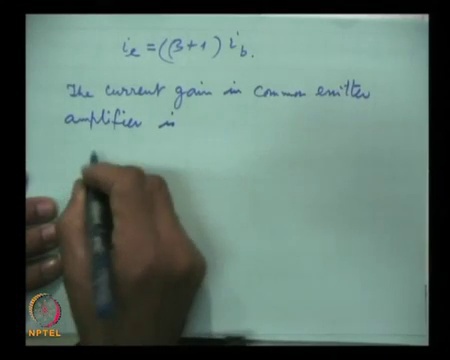 i_e = (β + 1) i_b.
The current gain in common emitter
amplifier is
NPTEL